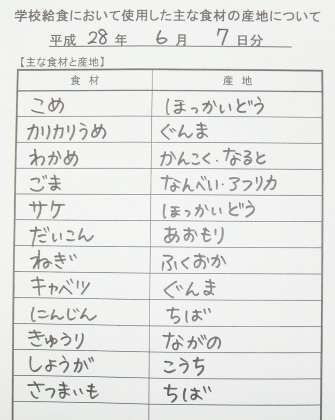 学校給食において使用した主な食材の産地について
平成 28 年 6 月 7 日分
【主な食材と産地】
食材 産地
こめ ほっかいどう
カリカリうめ ぐんま
わかめ かんこく・なると
ごま なんべい・アフリカ
サケ ほっかいどう
だいこん あおもり
ねぎ ふくおか
キャベツ ぐんま
にんじん ちば
きゅうり ながの
しょうが こうち
さつまいも ちば